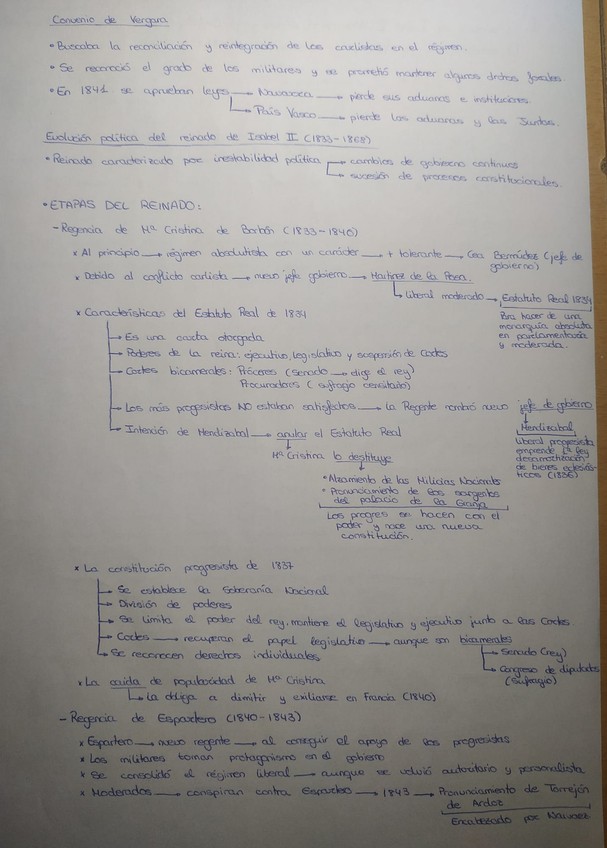 Convenio de Vergara
• Buscaba la reconciliación y reintegración de los carlistas en el régimen.
• Se reconoció el grado de los militares y se prometió mantener algunos drchos forales.
• En 1841 se aprueban leyes → Navarra → pierde sus aduanas e instituciones.
→ País Vasco → pierde las aduanas y las Juntas.
Evolución política del reinado de Isabel II (1833-1868)
• Reinado caracterizado por inestabilidad política → cambios de gobierno continuos
→ sucesión de procesos constitucionales.
• ETAPAS DEL REINADO:
- Regencia de Mª Cristina de Borbón (1833-1840)
x Al principio → régimen absolutista con un carácter → + tolerante → Cea Bermúdez (jefe de
gobierno)
x Debido al conflicto carlista → nuevo jefe gobierno → Martínez de la Rosa.
→ liberal moderado → Estatuto Real 1834
Para hacer de una
monarquía absoluta
en parlamentaria
y moderada.
x Características del Estatuto Real de 1834
→ Es una carta otorgada
→ Poderes de la reina: ejecutivo, legislativo y suspensión de Cortes
→ Cortes bicamerales: Próceres (Senado → elige el rey)
Procuradores (sufragio censitario)
→ Los más progresistas NO estaban satisfechos → la Regente nombró nuevo jefe de gobierno
↓
Mendizabal
liberal progresista
emprende la ley
desamortización
de bienes eclesiás-
ticos (1836)
→ Intención de Mendizabal → anular el Estatuto Real
↓
Mª Cristina lo destituye
↓
• Alzamiento de las Milicias Nacionales
• Pronunciamiento de los sargentos
del palacio de la Granja
Los progres se hacen con el
poder y nace una nueva
constitución.
x La constitución progresista de 1837
→ Se establece la Soberanía Nacional
→ División de poderes
→ Se limita el poder del rey, mantiene el legislativo y ejecutivo junto a las Cortes.
→ Cortes → recuperan el papel legislativo → aunque son bicamerales
→ Senado (rey)
→ Congreso de diputados
(Sufragio)
→ Se reconocen derechos individuales
x La caída de popularidad de Mª Cristina
→ La obliga a dimitir y exiliarse en Francia (1840)
- Regencia de Espartero (1840-1843)
x Espartero → nuevo regente → al conseguir el apoyo de los progresistas
x Los militares toman protagonismo en el gobierno
x Se consolidó el régimen liberal → aunque se volvió autoritario y personalista
x Moderados → conspiran contra Espartero → 1843 → Pronunciamiento de Torrejón
de Ardoz
Encabezado por Narvaez